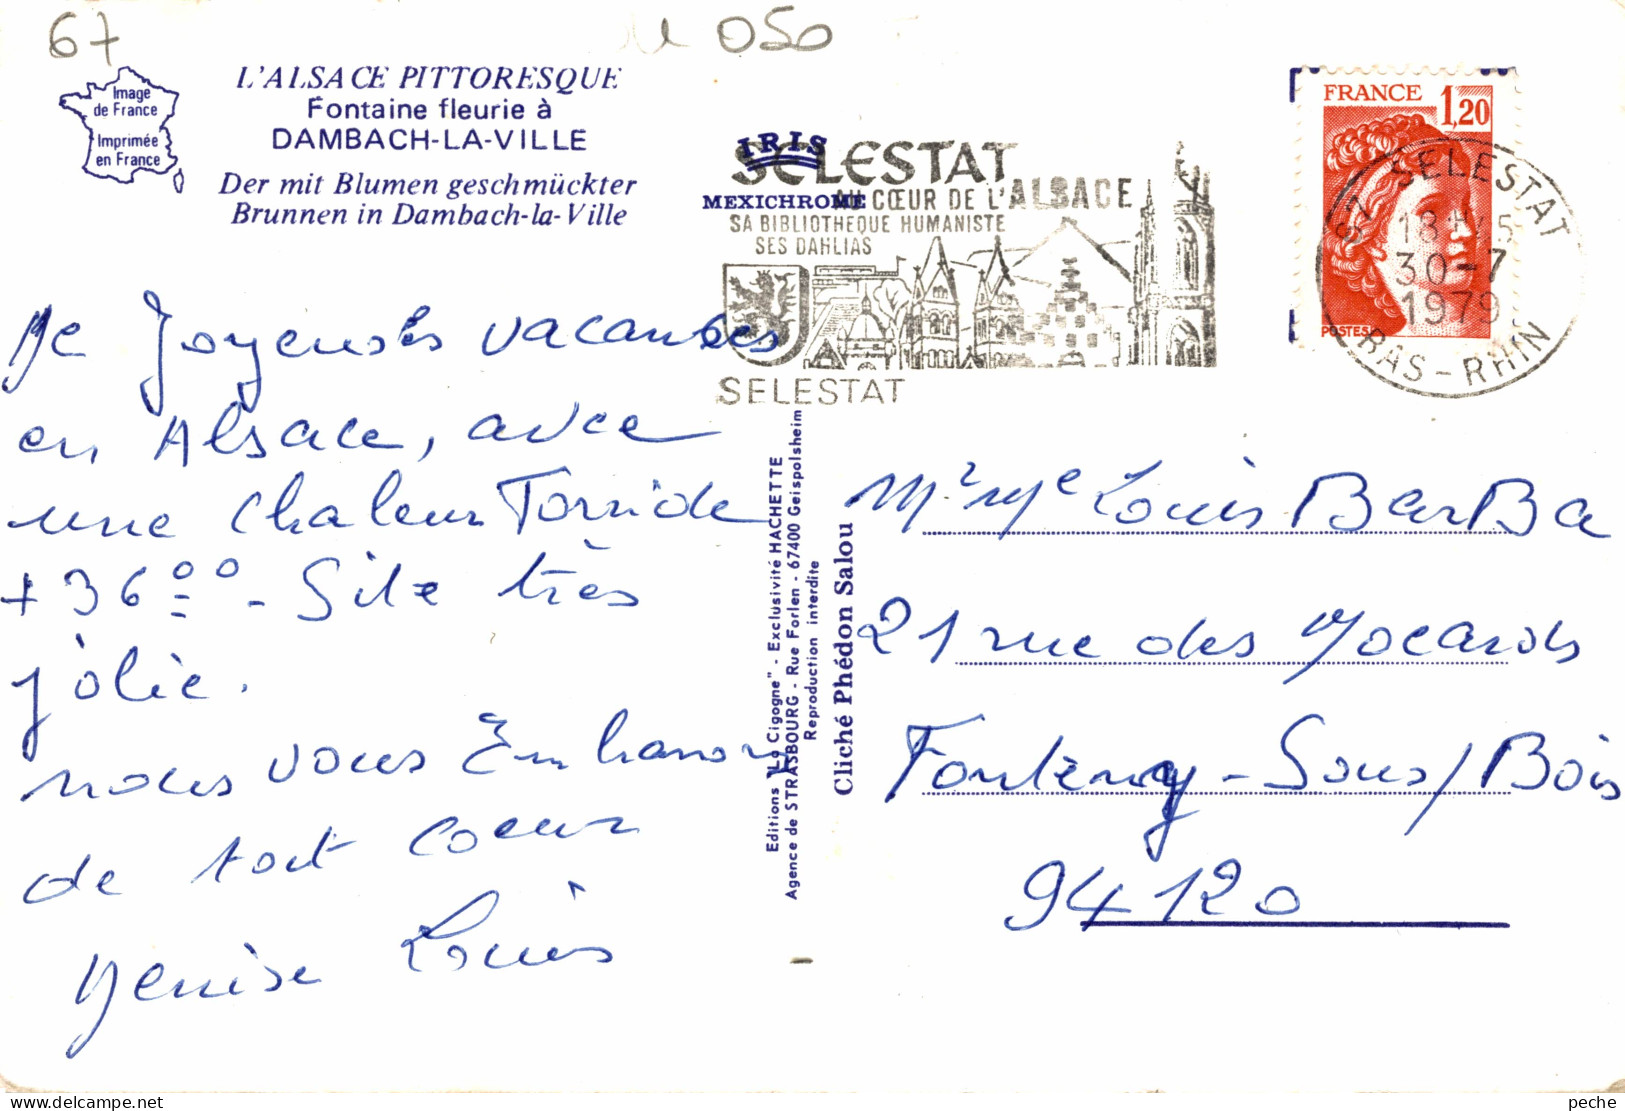 67
050
Image
de France
Imprimée
en France
L'ALSACE PITTORESQUE
Fontaine fleurie à
DAMBACH-LA-VILLE
Der mit Blumen geschmückter
Brunnen in Dambach-la-Ville
IRIS
MEXICHROME
SELESTAT
AU CŒUR DE L'ALSACE
SA BIBLIOTHEQUE HUMANISTE
SES DAHLIAS
SELESTAT
FRANCE 1,20
POSTES
67 SELESTAT
30-7
1979
BAS-RHIN
De Joyeuses vacances
en Alsace, avec
une chaleur Torride
+ 36°° - Site très
jolie.
nous vous Embrassons
de tout coeur
Denise Louis
Editions "La Cigogne" - Exclusivité HACHETTE
Agence de STRASBOURG - Rue Forlen - 67400 Geispolsheim
Reproduction interdite
Cliché Phédon Salou
Mr Me Louis BarBa
21 rue des Mocards
Fontenay-Sous/Bois
94120
peche